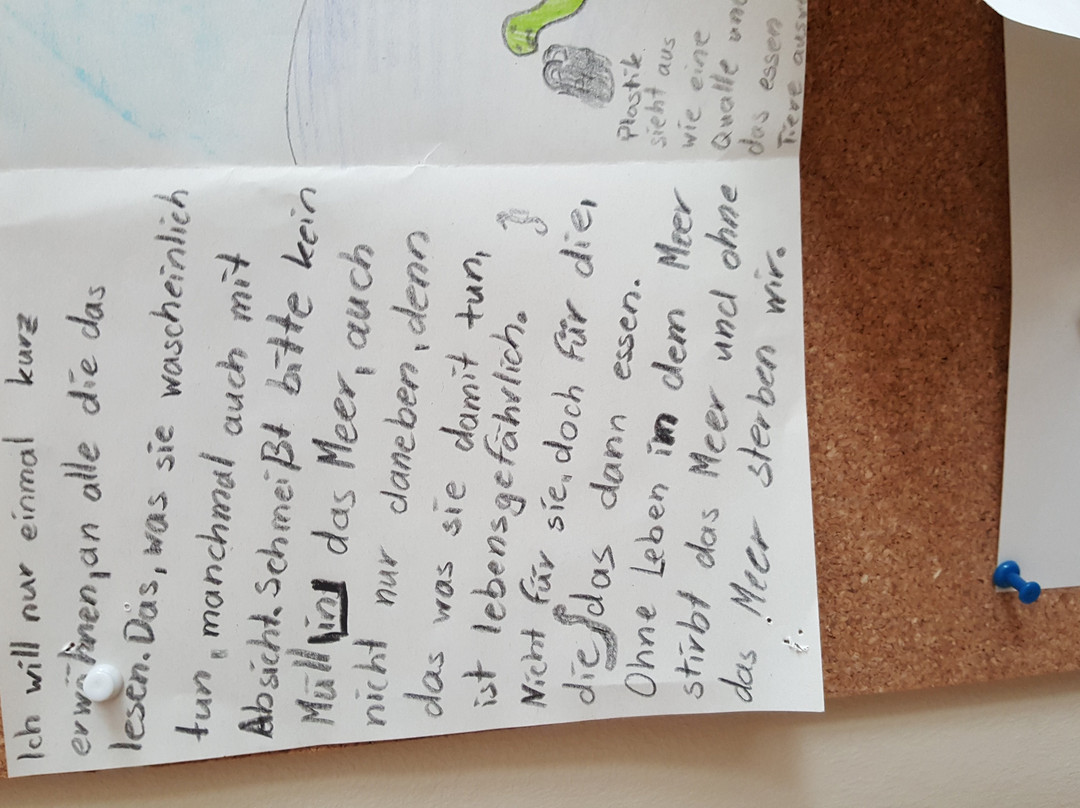 Ich will nur einmal kurz
erwähnen, an alle die das
lesen. Das, was sie wascheinlich
tun, manchmal auch mit
Absicht. Schmeißt bitte kein
Müll in das Meer, auch
nicht nur daneben, denn
das was sie damit tun,
ist lebensgefährlich.
Nicht für sie, doch für die,
die das dann essen.
Ohne Leben im dem Meer
stirbt das Meer und ohne
das Meer sterben wir.
Plastik
sieht aus
wie eine
Qualle und
das essen
Tiere